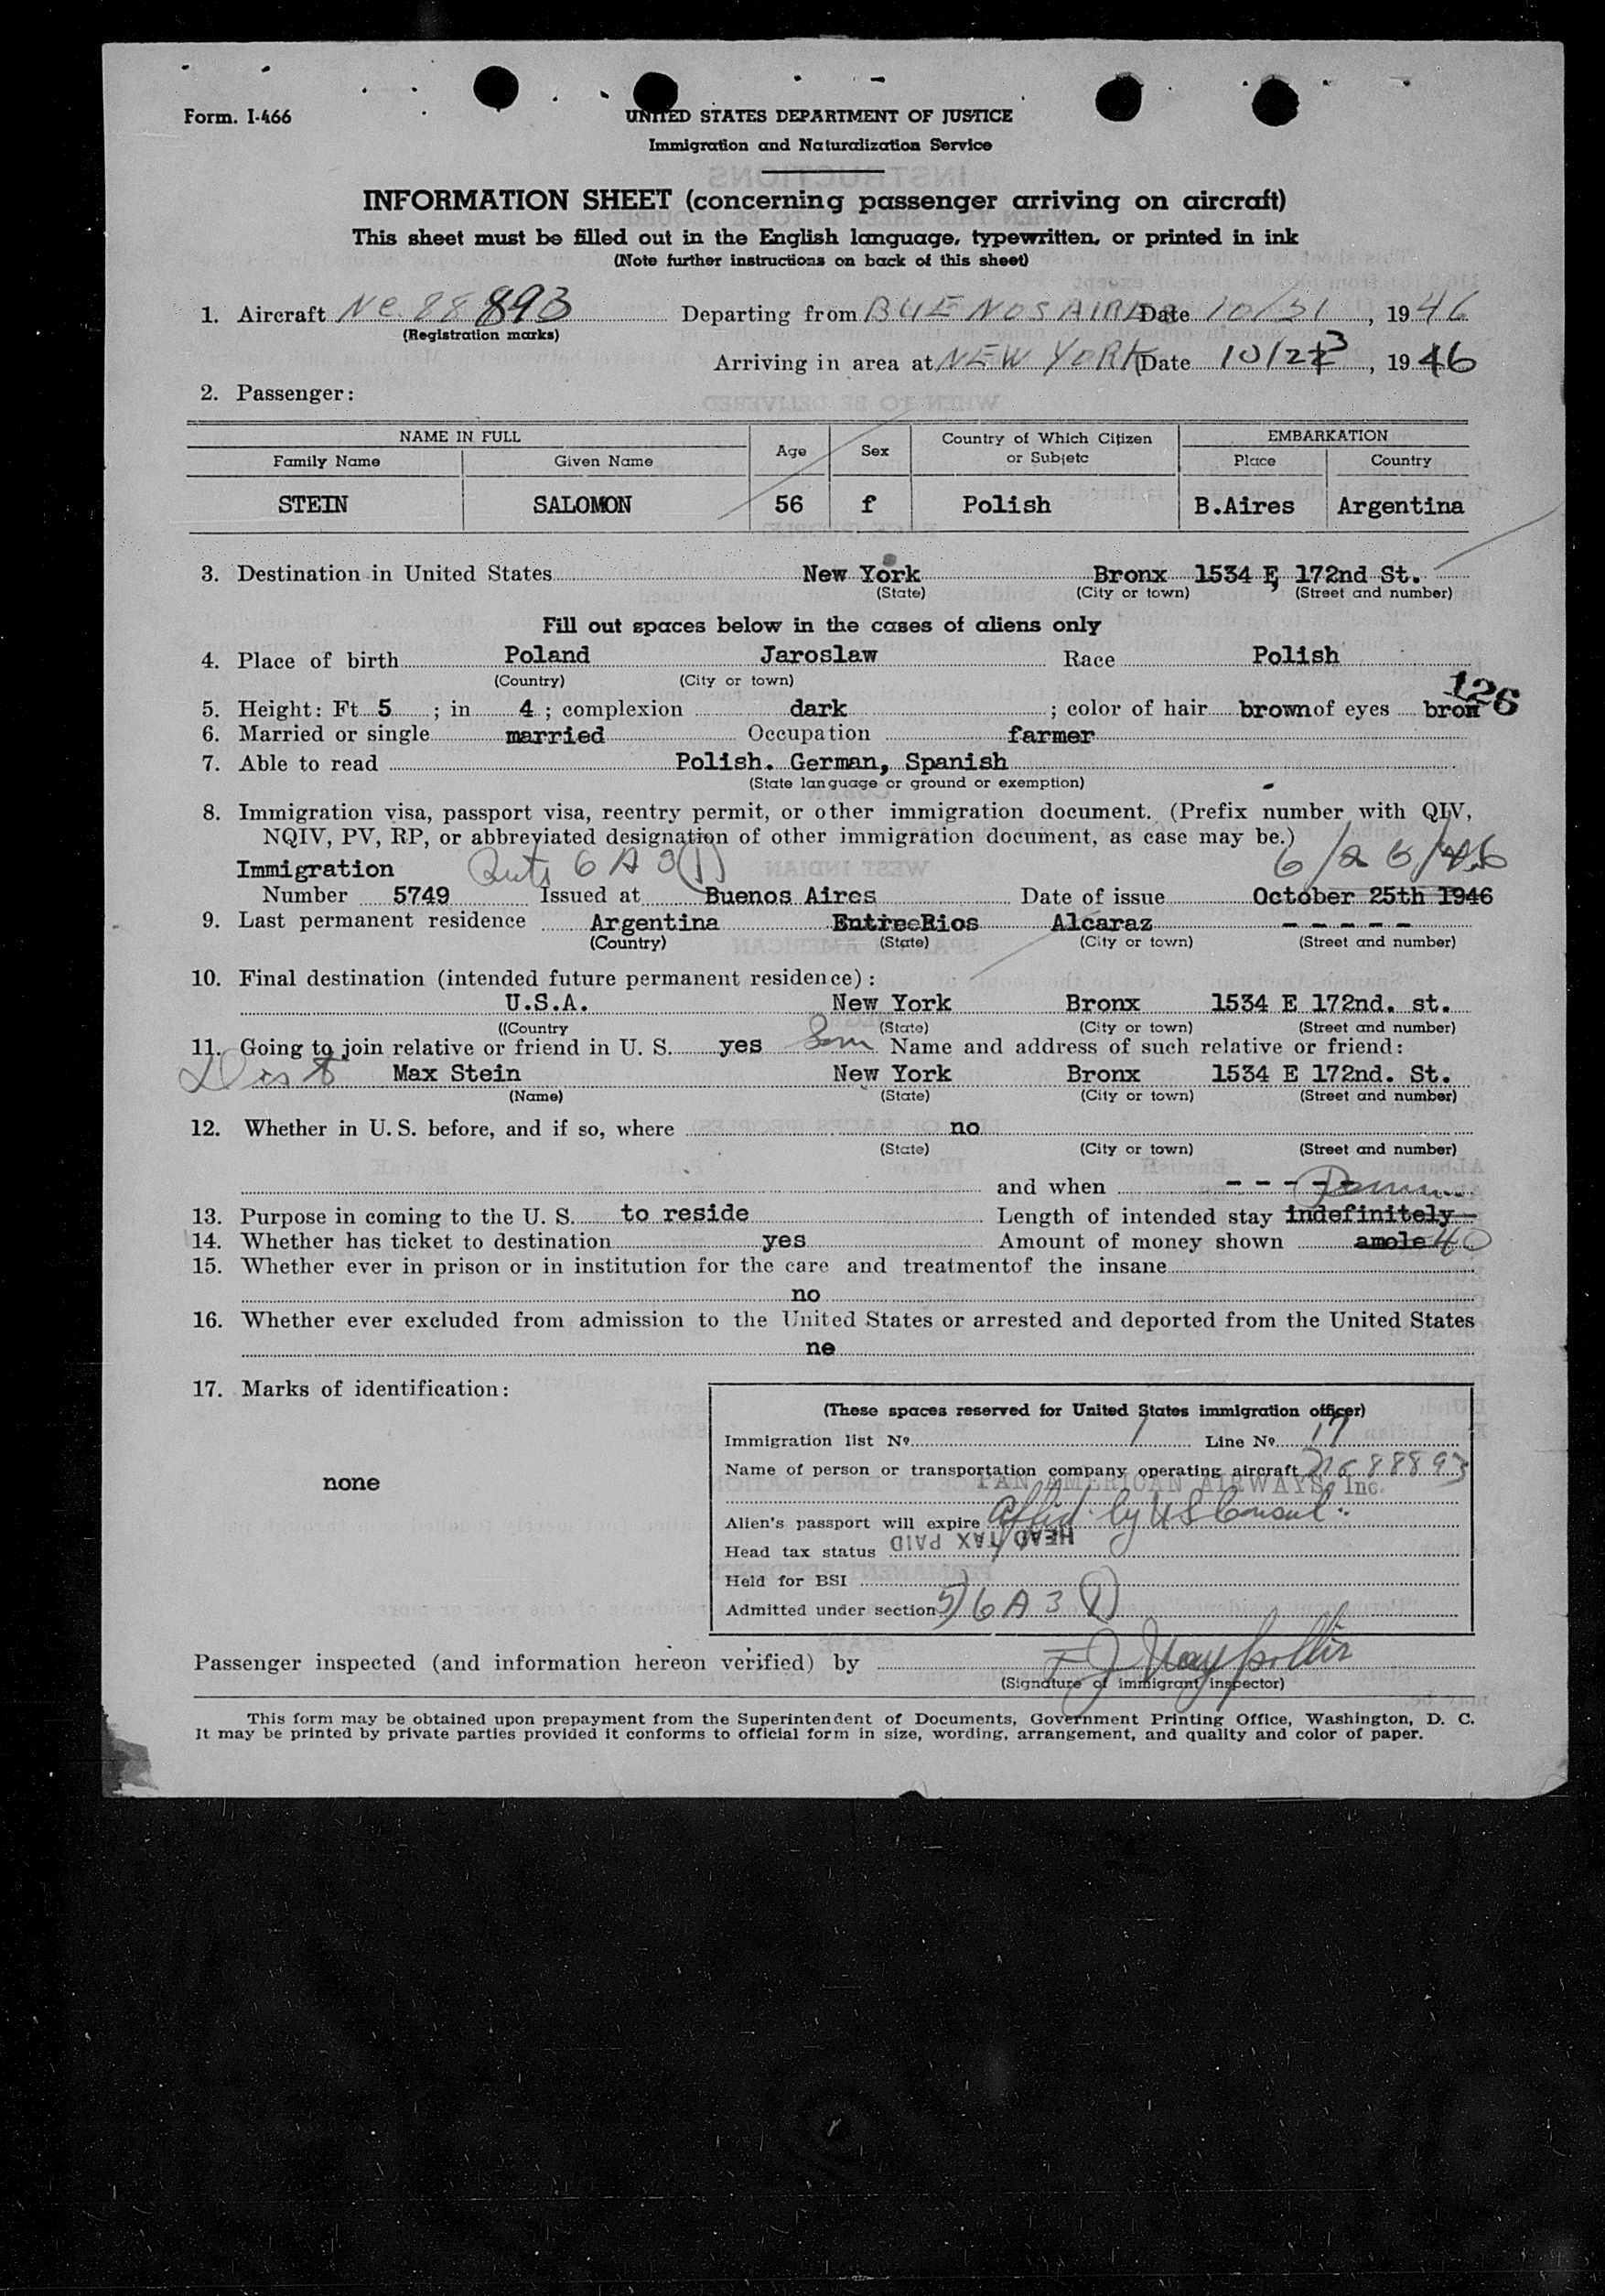 Form. I-466
UNITED STATES DEPARTMENT OF JUSTICE
Immigration and Naturalization Service
INFORMATION SHEET (concerning passenger arriving on aircraft)
This sheet must be filled out in the English language, typewritten, or printed in ink
(Note further instructions on back of this sheet)
1. Aircraft Nc. 88893 Departing from BUENOS AIRES Date 10/21, 1946
(Registration marks)
Arriving in area at NEW YORK Date 10/23, 1946
2. Passenger:
NAME IN FULL Age Sex Country of Which Citizen or Subjetc EMBARKATION
Family Name Given Name Place Country
STEIN SALOMON 56 f Polish B.Aires Argentina
3. Destination in United States New York Bronx 1534 E, 172nd St.
(State) (City or town) (Street and number)
Fill out spaces below in the cases of aliens only
4. Place of birth Poland Jaroslaw Race Polish
(Country) (City or town)
126
5. Height: Ft 5 ; in 4 ; complexion dark ; color of hair brown of eyes bron
6. Married or single married Occupation farmer
7. Able to read Polish. German, Spanish
(State language or ground or exemption)
8. Immigration visa, passport visa, reentry permit, or other immigration document. (Prefix number with QIV,
NQIV, PV, RP, or abbreyiated designation of other immigration document, as case may be.)
Immigration 6 A 3 (1) 6/26/46
Number 5749 Issued at Buenos Aires Date of issue October 25th 1946
9. Last permanent residence Argentina EntreeRios Alcaraz - - - - -
(Country) (State) (City or town) (Street and number)
10. Final destination (intended future permanent residence):
U.S.A. New York Bronx 1534 E 172nd. st.
((Country (State) (City or town) (Street and number)
11. Going to join relative or friend in U. S. yes Son Name and address of such relative or friend:
Max Stein New York Bronx 1534 E 172nd. St.
(Name) (State) (City or town) (Street and number)
12. Whether in U. S. before, and if so, where no
(State) (City or town) (Street and number)
and when - - - - -
13. Purpose in coming to the U. S. to reside Length of intended stay indefinitely
14. Whether has ticket to destination yes Amount of money shown amole 40
15. Whether ever in prison or in institution for the care and treatmentof the insane
no
16. Whether ever excluded from admission to the United States or arrested and deported from the United States
ne
17. Marks of identification:
none
(These spaces reserved for United States immigration officer)
Immigration list Nº 1 Line Nº 17
Name of person or transportation company operating aircraft nc 88893
PAN AMERICAN AIRWAYS, Inc.
Alien's passport will expire Affid. by US Consul.
Head tax status HEAD TAX PAID
Held for BSI
Admitted under section 5) 6 A 3 (1)
Passenger inspected (and information hereon verified) by
(Signature of immigrant inspector)
This form may be obtained upon prepayment from the Superintendent of Documents, Government Printing Office, Washington, D. C.
It may be printed by private parties provided it conforms to official form in size, wording, arrangement, and quality and color of paper.